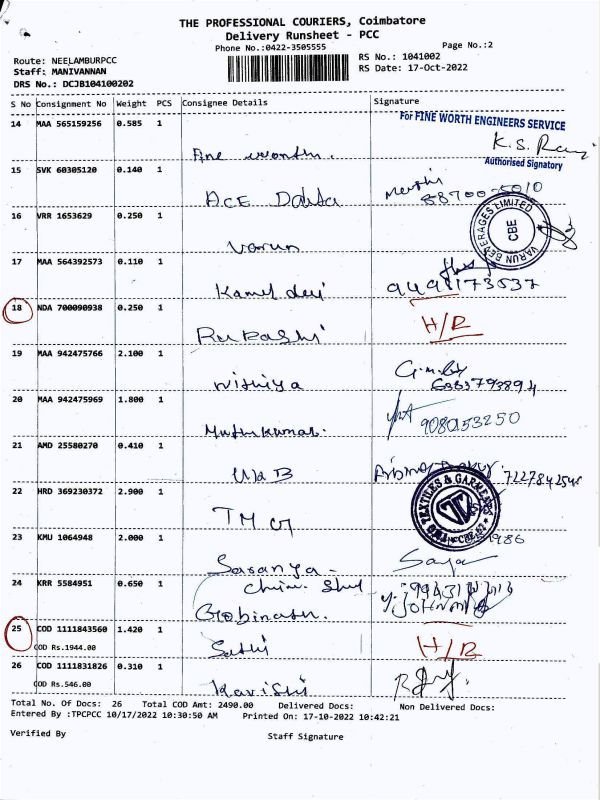 THE PROFESSIONAL COURIERS, Coimbatore
Delivery Runsheet - PCC
Phone No.:0422-3505555
Page No.:2
Route: NEELAMBURPCC
RS No.: 1041002
Staff: MANIVANNAN
RS Date: 17-Oct-2022
DRS No.: DCJB104100202
S No Consignment No Weight PCS Consignee Details Signature
14 MAA 565159256 0.585 1
For FINE WORTH ENGINEERS SERVICE
K.S. Ravi
Authorised Signatory
15 SVK 60305120 0.140 1
ACE Data
16 VRR 1653629 0.250 1
Varun
VARUN BEVERAGES LIMITED
CBE
17 MAA 564392573 0.110 1
Kamal devi
18 NDA 700090938 0.250 1
Rukashi H/R
19 MAA 942475766 2.100 1
Nithiya
20 MAA 942475969 1.800 1
Muthukumar.
21 AMD 25580270 0.410 1
7227842545
22 HRD 369230372 2.900 1
TM
TEXTILES & GARMENTS
23 KMU 1064948 2.000 1
Saranya -
24 KRR 5584951 0.650 1
Gobinath.
25 COD 1111843560 1.420 1
COD Rs.1944.00
Sathi H/R
26 COD 1111831826 0.310 1
COD Rs.546.00
Kavishi
Total No. Of Docs: 26 Total COD Amt: 2490.00 Delivered Docs: Non Delivered Docs:
Entered By :TPCPCC 10/17/2022 10:30:50 AM Printed On: 17-10-2022 10:42:21
Verified By
Staff Signature